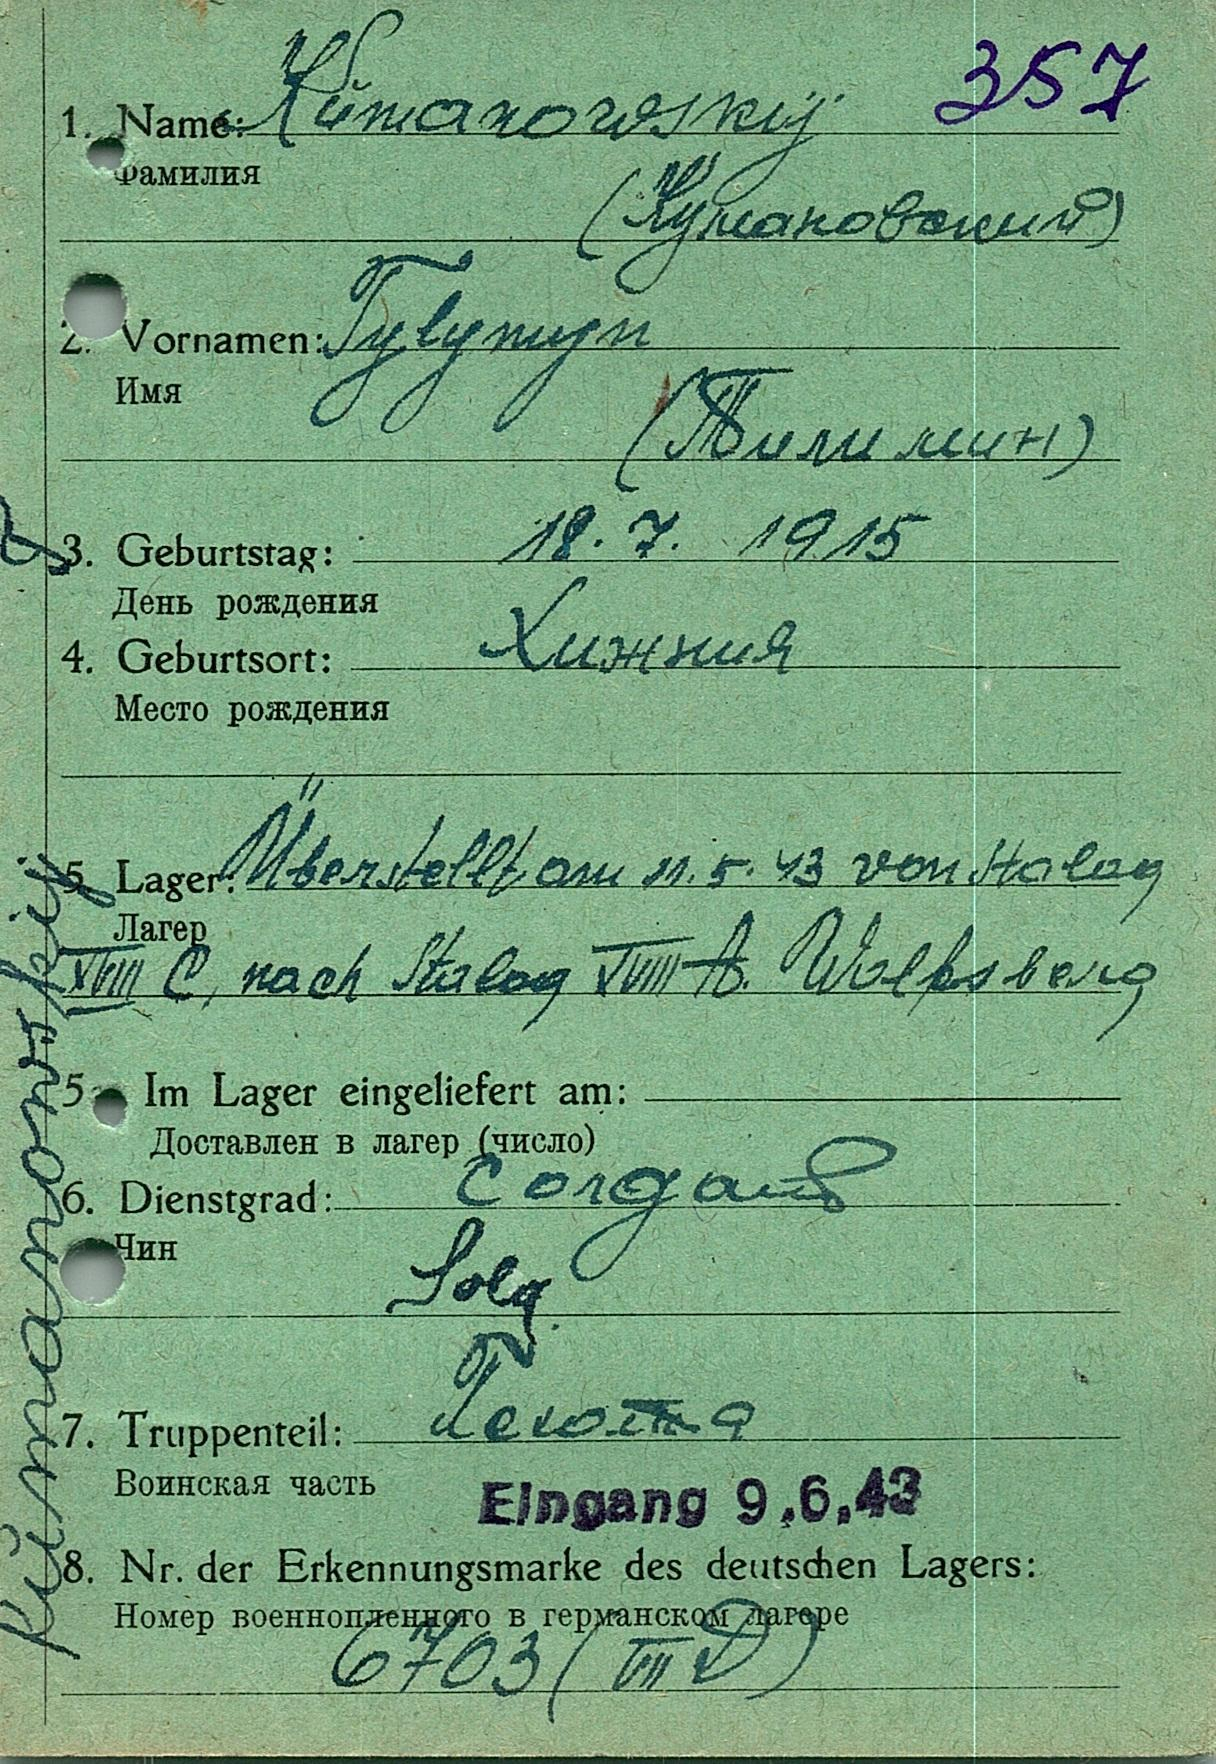 357
1. Name: Kümanowskij
Фамилия
(Кумановский)
2. Vornamen:
Имя
3. Geburtstag: 18. 7. 1915
День рождения
4. Geburtsort: Хижния
Место рождения
5. Lager: Überstellt am 11. 5. 43 von Stalag
Лагер
XVIII C, nach Stalag XVIII A. Wolfsberg
5 Im Lager eingeliefert am:
Доставлен в лагер (число)
6. Dienstgrad:
Чин
Sold.
7. Truppenteil: Пехота
Воинская часть
Eingang 9.6.43
8. Nr. der Erkennungsmarke des deutschen Lagers:
Номер военнопленного в германском лагере
6703 (III D)
Kümanowskij